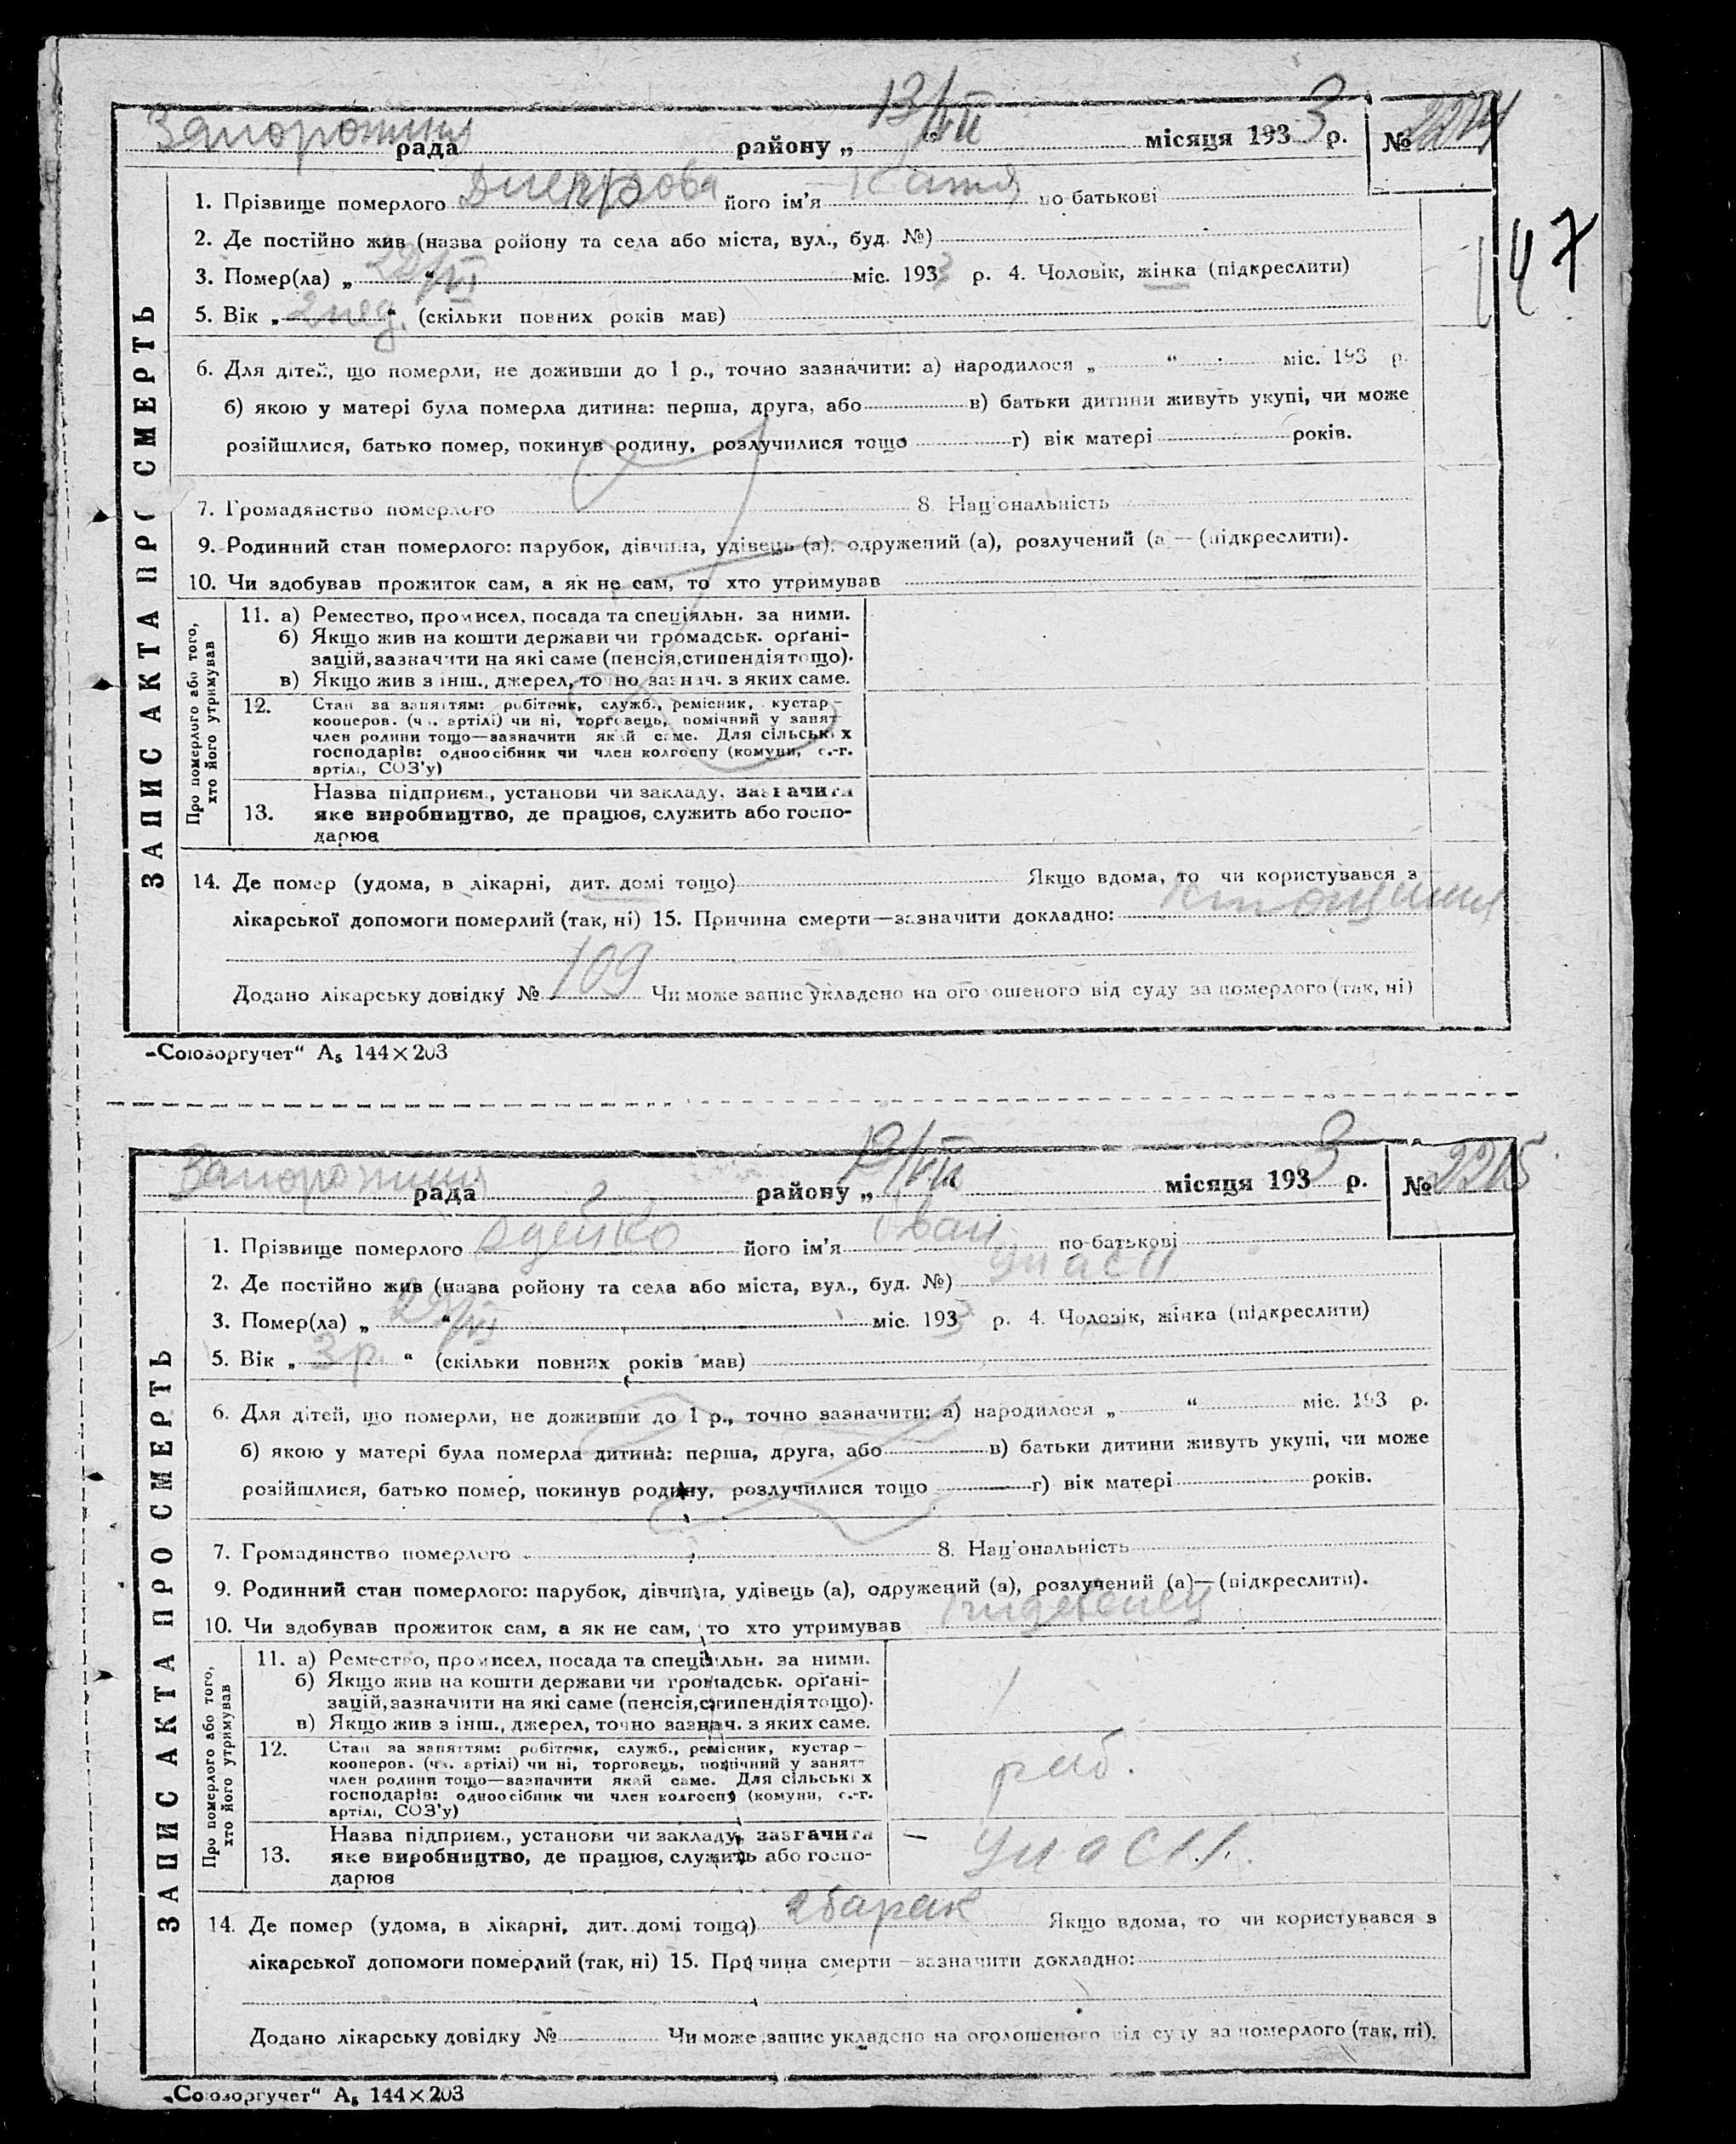 Запорожжя рада району „13/VII“ місяця 1933 р. № 2214
147
1. Прізвище померлого Днепрова його ім'я Катя по-батькові
2. Де постійно жив (назва ройону та села або міста, вул., буд. №)
3. Помер(ла) „22/VI“ міс. 1933 р. 4. Чоловік, жінка (підкреслити)
5. Вік „2 нед.“ (скільки повних років мав)
6. Для дітей, що померли, не доживши до 1 р., точно зазначити: а) народилося „ “ міс. 193 р.
б) якою у матері була померла дитина: перша, друга, або в) батьки дитини живуть укупі, чи може
розійшлися, батько помер, покинув родину, розлучилися тощо г) вік матері років.
7. Громадянство померлого 8. Національність
9. Родинний стан померлого: парубок, дівчина, удівець (а), одружений (а), розлучений (а) — (підкреслити).
10. Чи здобував прожиток сам, а як не сам, то хто утримував
ЗАПИС АКТА ПРО СМЕРТЬ
Про померлого або того, хто його утримував
11. а) Ремество, промисел, посада та спеціяльн. за ними.
б) Якщо жив на кошти держави чи громадськ. орґані-
зацій, зазначити на які саме (пенсія, стипендія тощо).
в) Якщо жив з інш., джерел, точно зазнач. з яких саме.
12. Стан за заняттям: робітник, служб., ремісник, кустар—
кооперов. (чл. артілі) чи ні, торговець, помічний у занят
член родини тощо—зазначити який саме. Для сільських
господарів: одноосібник чи член колгоспу (комуни, с.-г.
артілі, СОЗ'у)
13. Назва підприєм., установи чи закладу, зазначити
яке виробництво, де працює, служить або госпо-
дарює
14. Де помер (удома, в лікарні, дит. домі тощо) Якщо вдома, то чи користувався з
лікарської допомоги померлий (так, ні) 15. Причина смерти—зазначити докладно:
Додано лікарську довідку № 109 Чи може запис укладено на оголошеного від суду за померлого (так, ні)
„Союзоргучет“ А₅ 144×203
Запорожжя рада району „13/VII“ місяця 1933 р. № 2215
1. Прізвище померлого його ім'я Іван по-батькові
2. Де постійно жив (назва ройону та села або міста, вул., буд. №)
3. Помер(ла) „ /VI“ міс. 1933 р. 4. Чоловік, жінка (підкреслити)
5. Вік „3 р.“ (скільки повних років мав)
6. Для дітей, що померли, не доживши до 1 р., точно зазначити: а) народилося „ “ міс. 193 р.
б) якою у матері була померла дитина: перша, друга, або в) батьки дитини живуть укупі, чи може
розійшлися, батько помер, покинув родину, розлучилися тощо г) вік матері років.
7. Громадянство померлого 8. Національність
9. Родинний стан померлого: парубок, дівчина, удівець (а), одружений (а), розлучений (а)—(підкреслити).
10. Чи здобував прожиток сам, а як не сам, то хто утримував
ЗАПИС АКТА ПРО СМЕРТЬ
Про померлого або того, хто його утримував
11. а) Ремество, промисел, посада та спеціяльн. за ними.
б) Якщо жив на кошти держави чи громадськ. орґані-
зацій, зазначити на які саме (пенсія, стипендія тощо).
в) Якщо жив з інш., джерел, точно зазнач. з яких саме.
12. Стан за заняттям: робітник, служб., ремісник, кустар—
кооперов. (чл. артілі) чи ні, торговець, помічний у занятт
член родини тощо—зазначити який саме. Для сільських
господарів: одноосібник чи член колгоспу (комуни, с.-г.
артілі, СОЗ'у)
роб.
13. Назва підприєм., установи чи закладу, зазначити
яке виробництво, де працює, служить або госпо-
дарює
14. Де помер (удома, в лікарні, дит. домі тощо) 2 барак Якщо вдома, то чи користувався з
лікарської допомоги померлий (так, ні) 15. Причина смерти—зазначити докладно:
Додано лікарську довідку № Чи може запис укладено на оголошеного від суду за померлого (так, ні).
„Союзоргучет“ А₅ 144×203